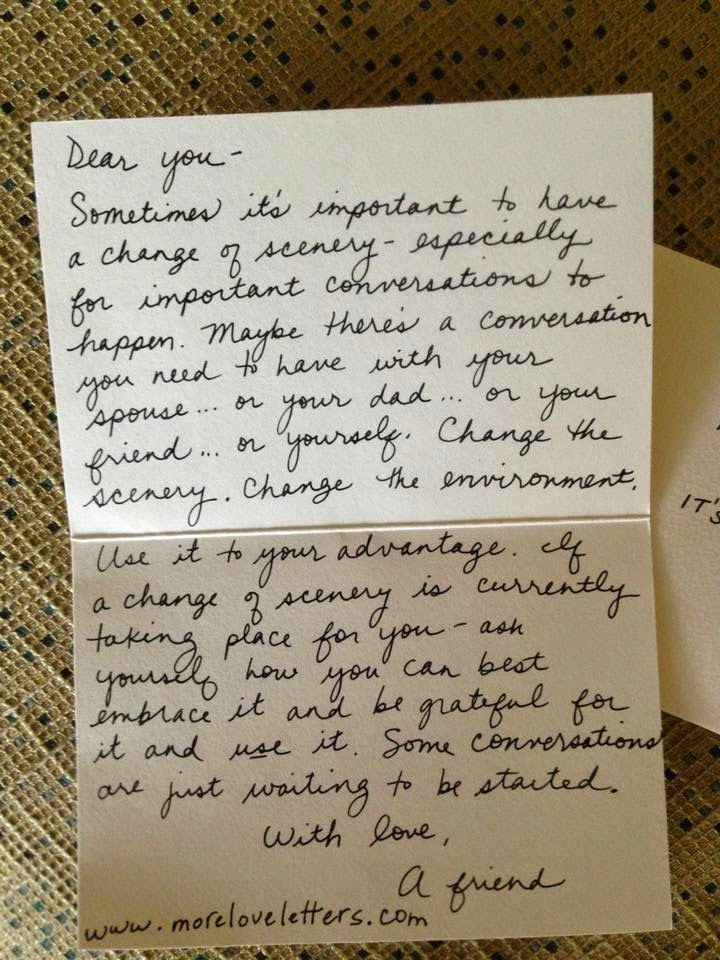 Dear you -
Sometimes it's important to have
a change of scenery - especially
for important conversations to
happen. Maybe there's a conversation
you need to have with your
spouse... or your dad... or your
friend... or yourself. Change the
scenery. Change the environment.
Use it to your advantage. If
a change of scenery is currently
taking place for you - ask
yourself how you can best
embrace it and be grateful for
it and use it. Some conversations
are just waiting to be started.
With love,
A friend
www.moreloveletters.com
IT'S